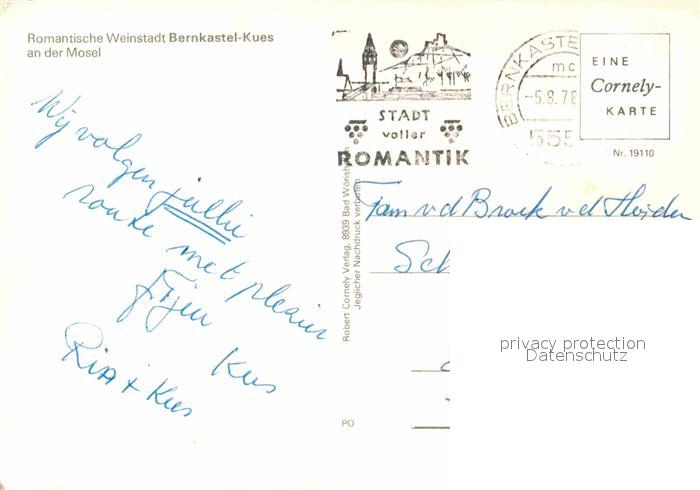 Romantische Weinstadt Bernkastel-Kues
an der Mosel
Wij volgen jullie
route met plezier
Fijn
Kus
Ria + Kees
STADT
voller
ROMANTIK
BERNKASTE
mc
-5.8.78
555
EINE
Cornely-
KARTE
Nr. 19110
Fam vd Broek vd Heijden
Sch
Robert Cornely Verlag, 8939 Bad Wörishofen
Jeglicher Nachdruck verboten
PO
privacy protection
Datenschutz